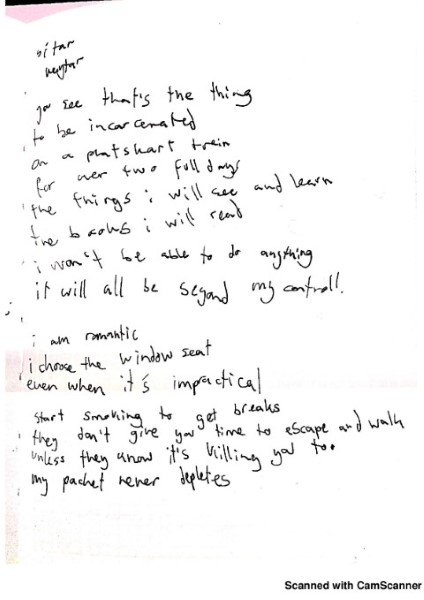 sitar
you see that's the thing
to be incarcerated
on a platskart train
for over two full days
the things i will see and learn
the books i will read
i won't be able to do anything
it will all be beyond my controll.
i am romantic
i choose the window seat
even when it's impractical
start smoking to get breaks
they don't give you time to escape and walk
unless they know it's killing you to.
my packet never depletes
Scanned with CamScanner